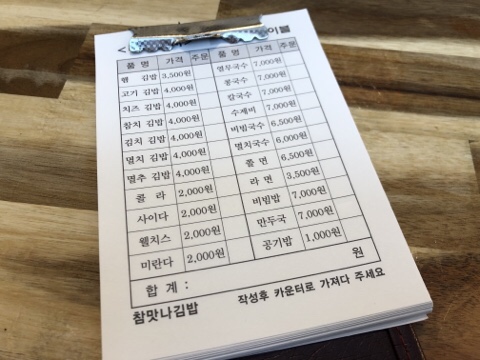 < 이블
품 명 가격 주문 품 명 가격 주문
햄 김밥 3,500원 열무국수 7,000원
고기 김밥 4,000원 콩국수 7,000원
치즈 김밥 4,000원 칼국수 7,000원
참치 김밥 4,000원 수제비 7,000원
김치 김밥 4,000원 비빔국수 6,500원
멸치 김밥 4,000원 멸치국수 6,000원
멸추 김밥 4,000원 쫄 면 6,500원
콜 라 2,000원 라 면 3,500원
사이다 2,000원 비빔밥 7,000원
웰치스 2,000원 만두국 7,000원
미란다 2,000원 공기밥 1,000원
합 계 : 원
참맛나김밥 작성후 카운터로 가져다 주세요